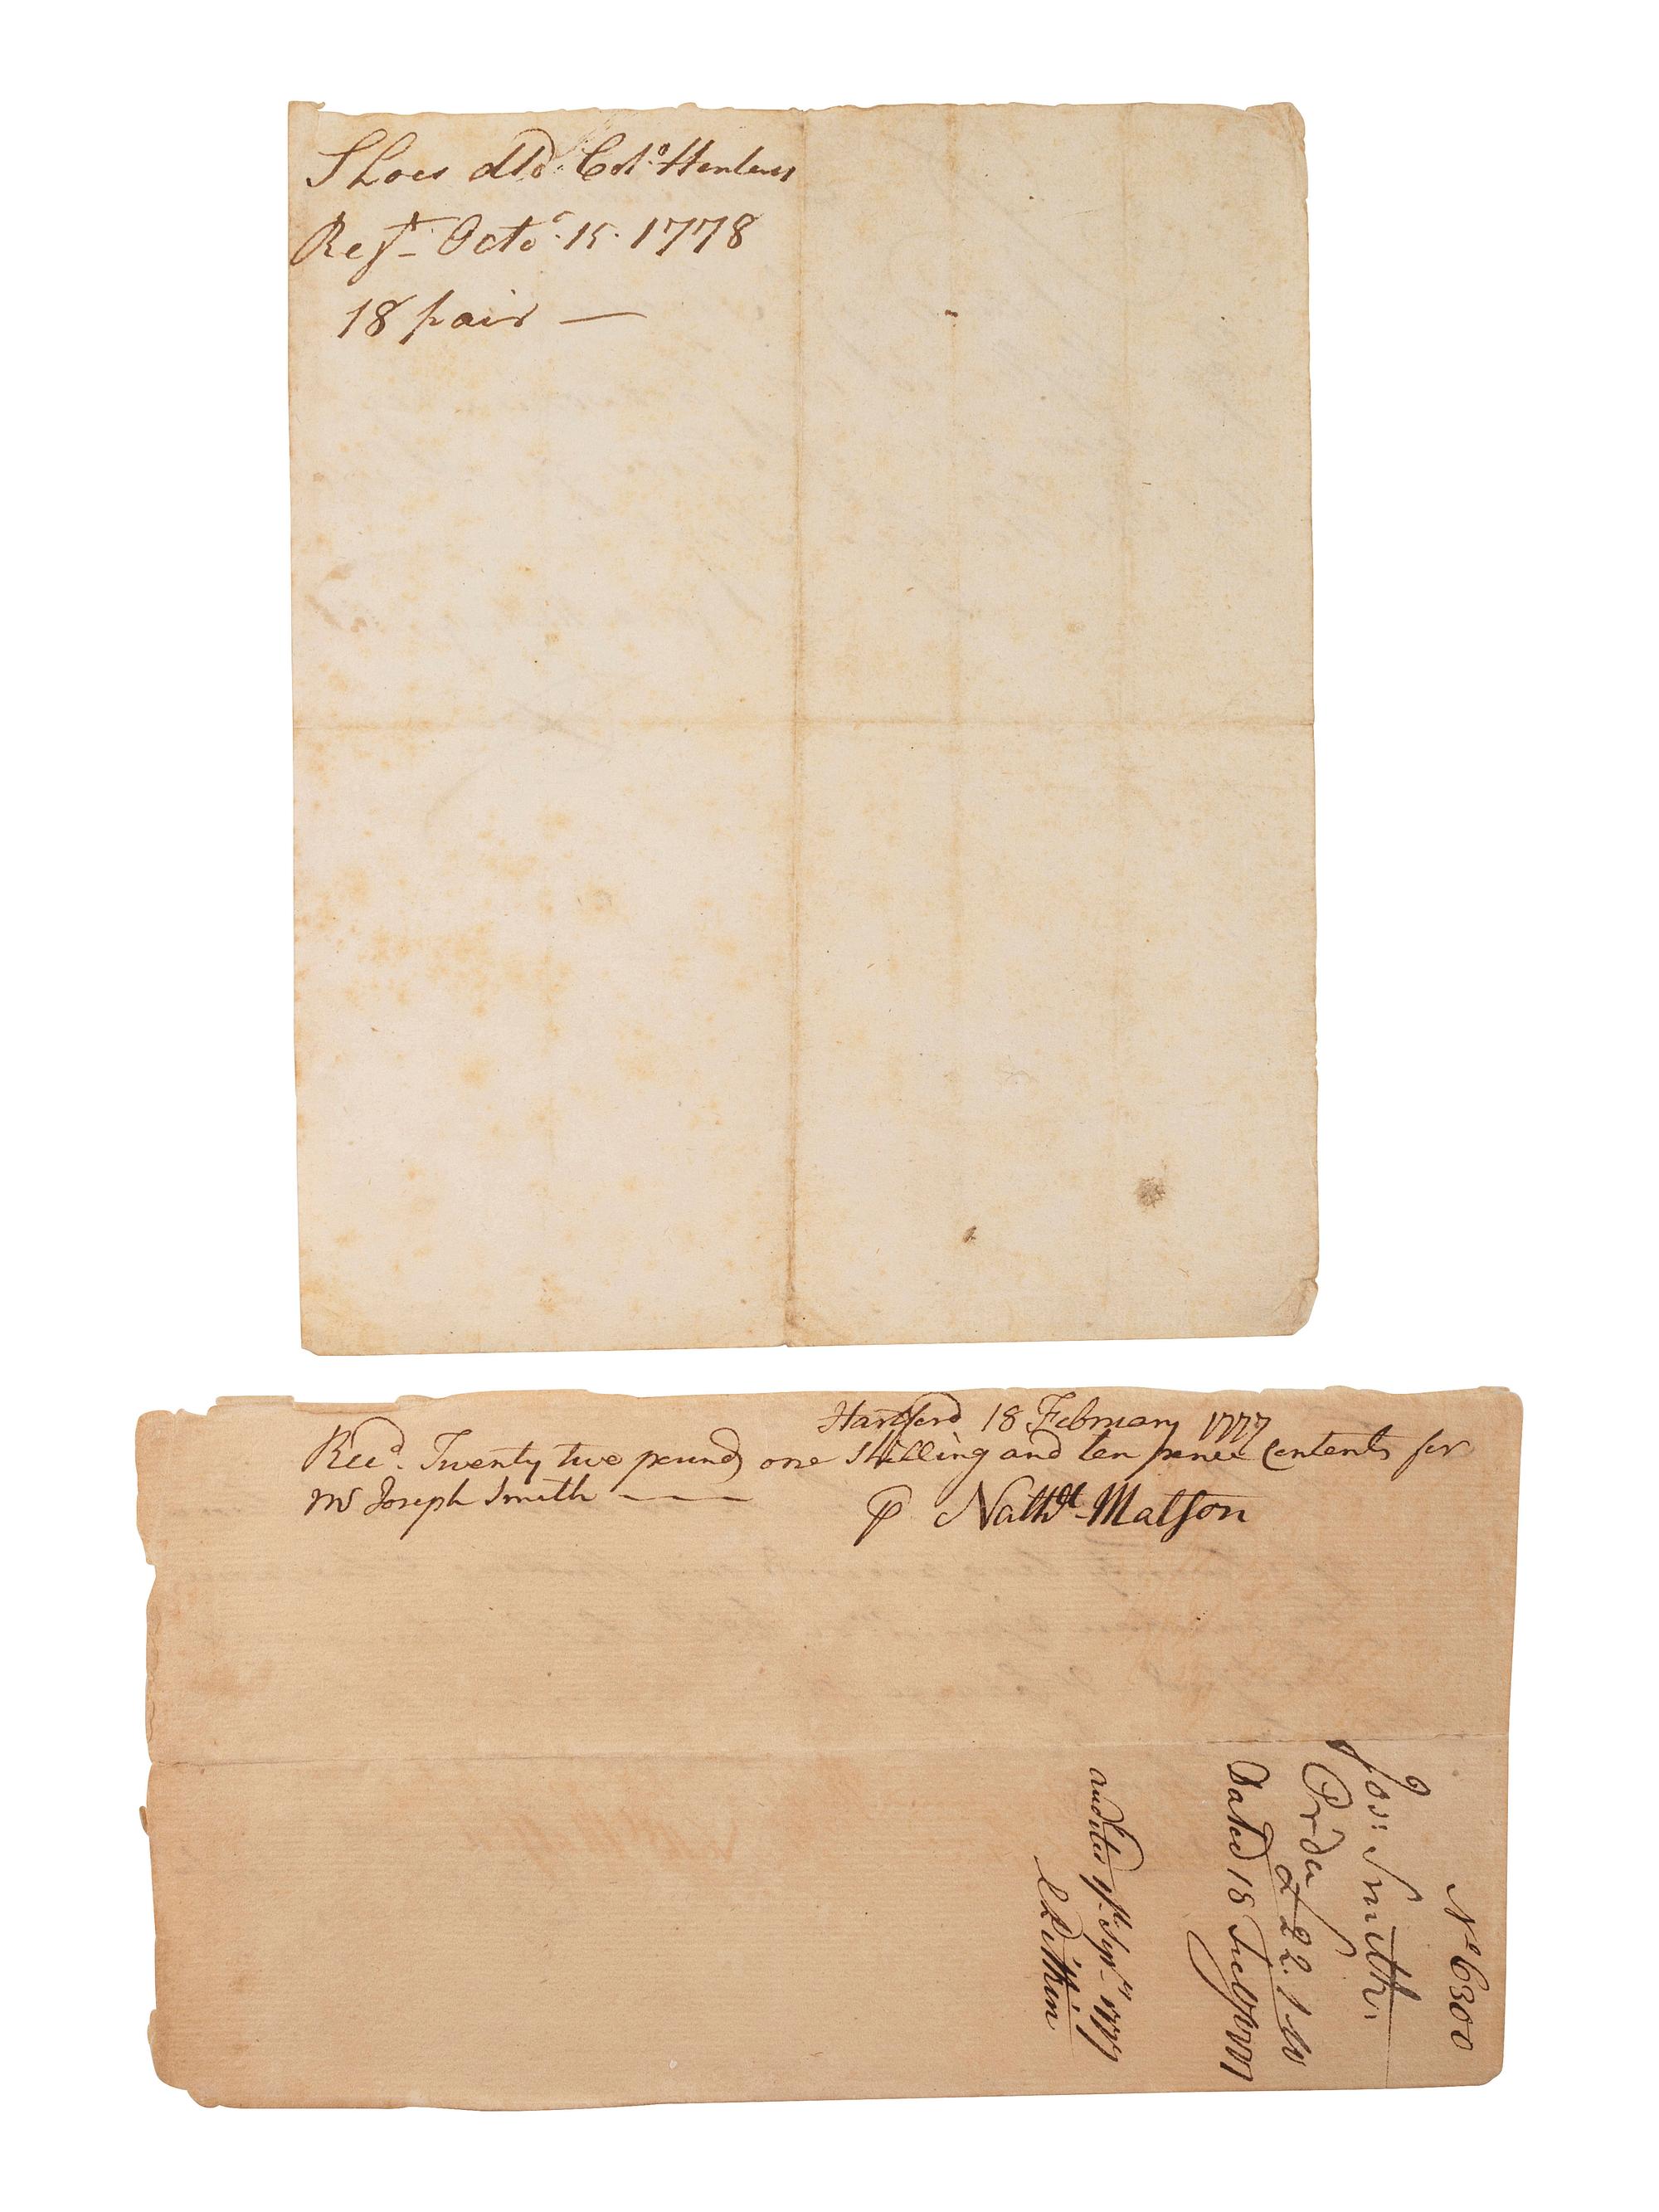 Shoes dld. Colo. Henleys
Regt. Octor. 15. 1778
18 pair —
Hartford 18 February 1777
Recd. Twenty two pounds one Shilling and ten pence Contents for
Mr Joseph Smith ———
P Nathll. Matson
No 6300
Jos: Smith
Order
£22.1.10
Dated 18 Feby 1777
audited 1777